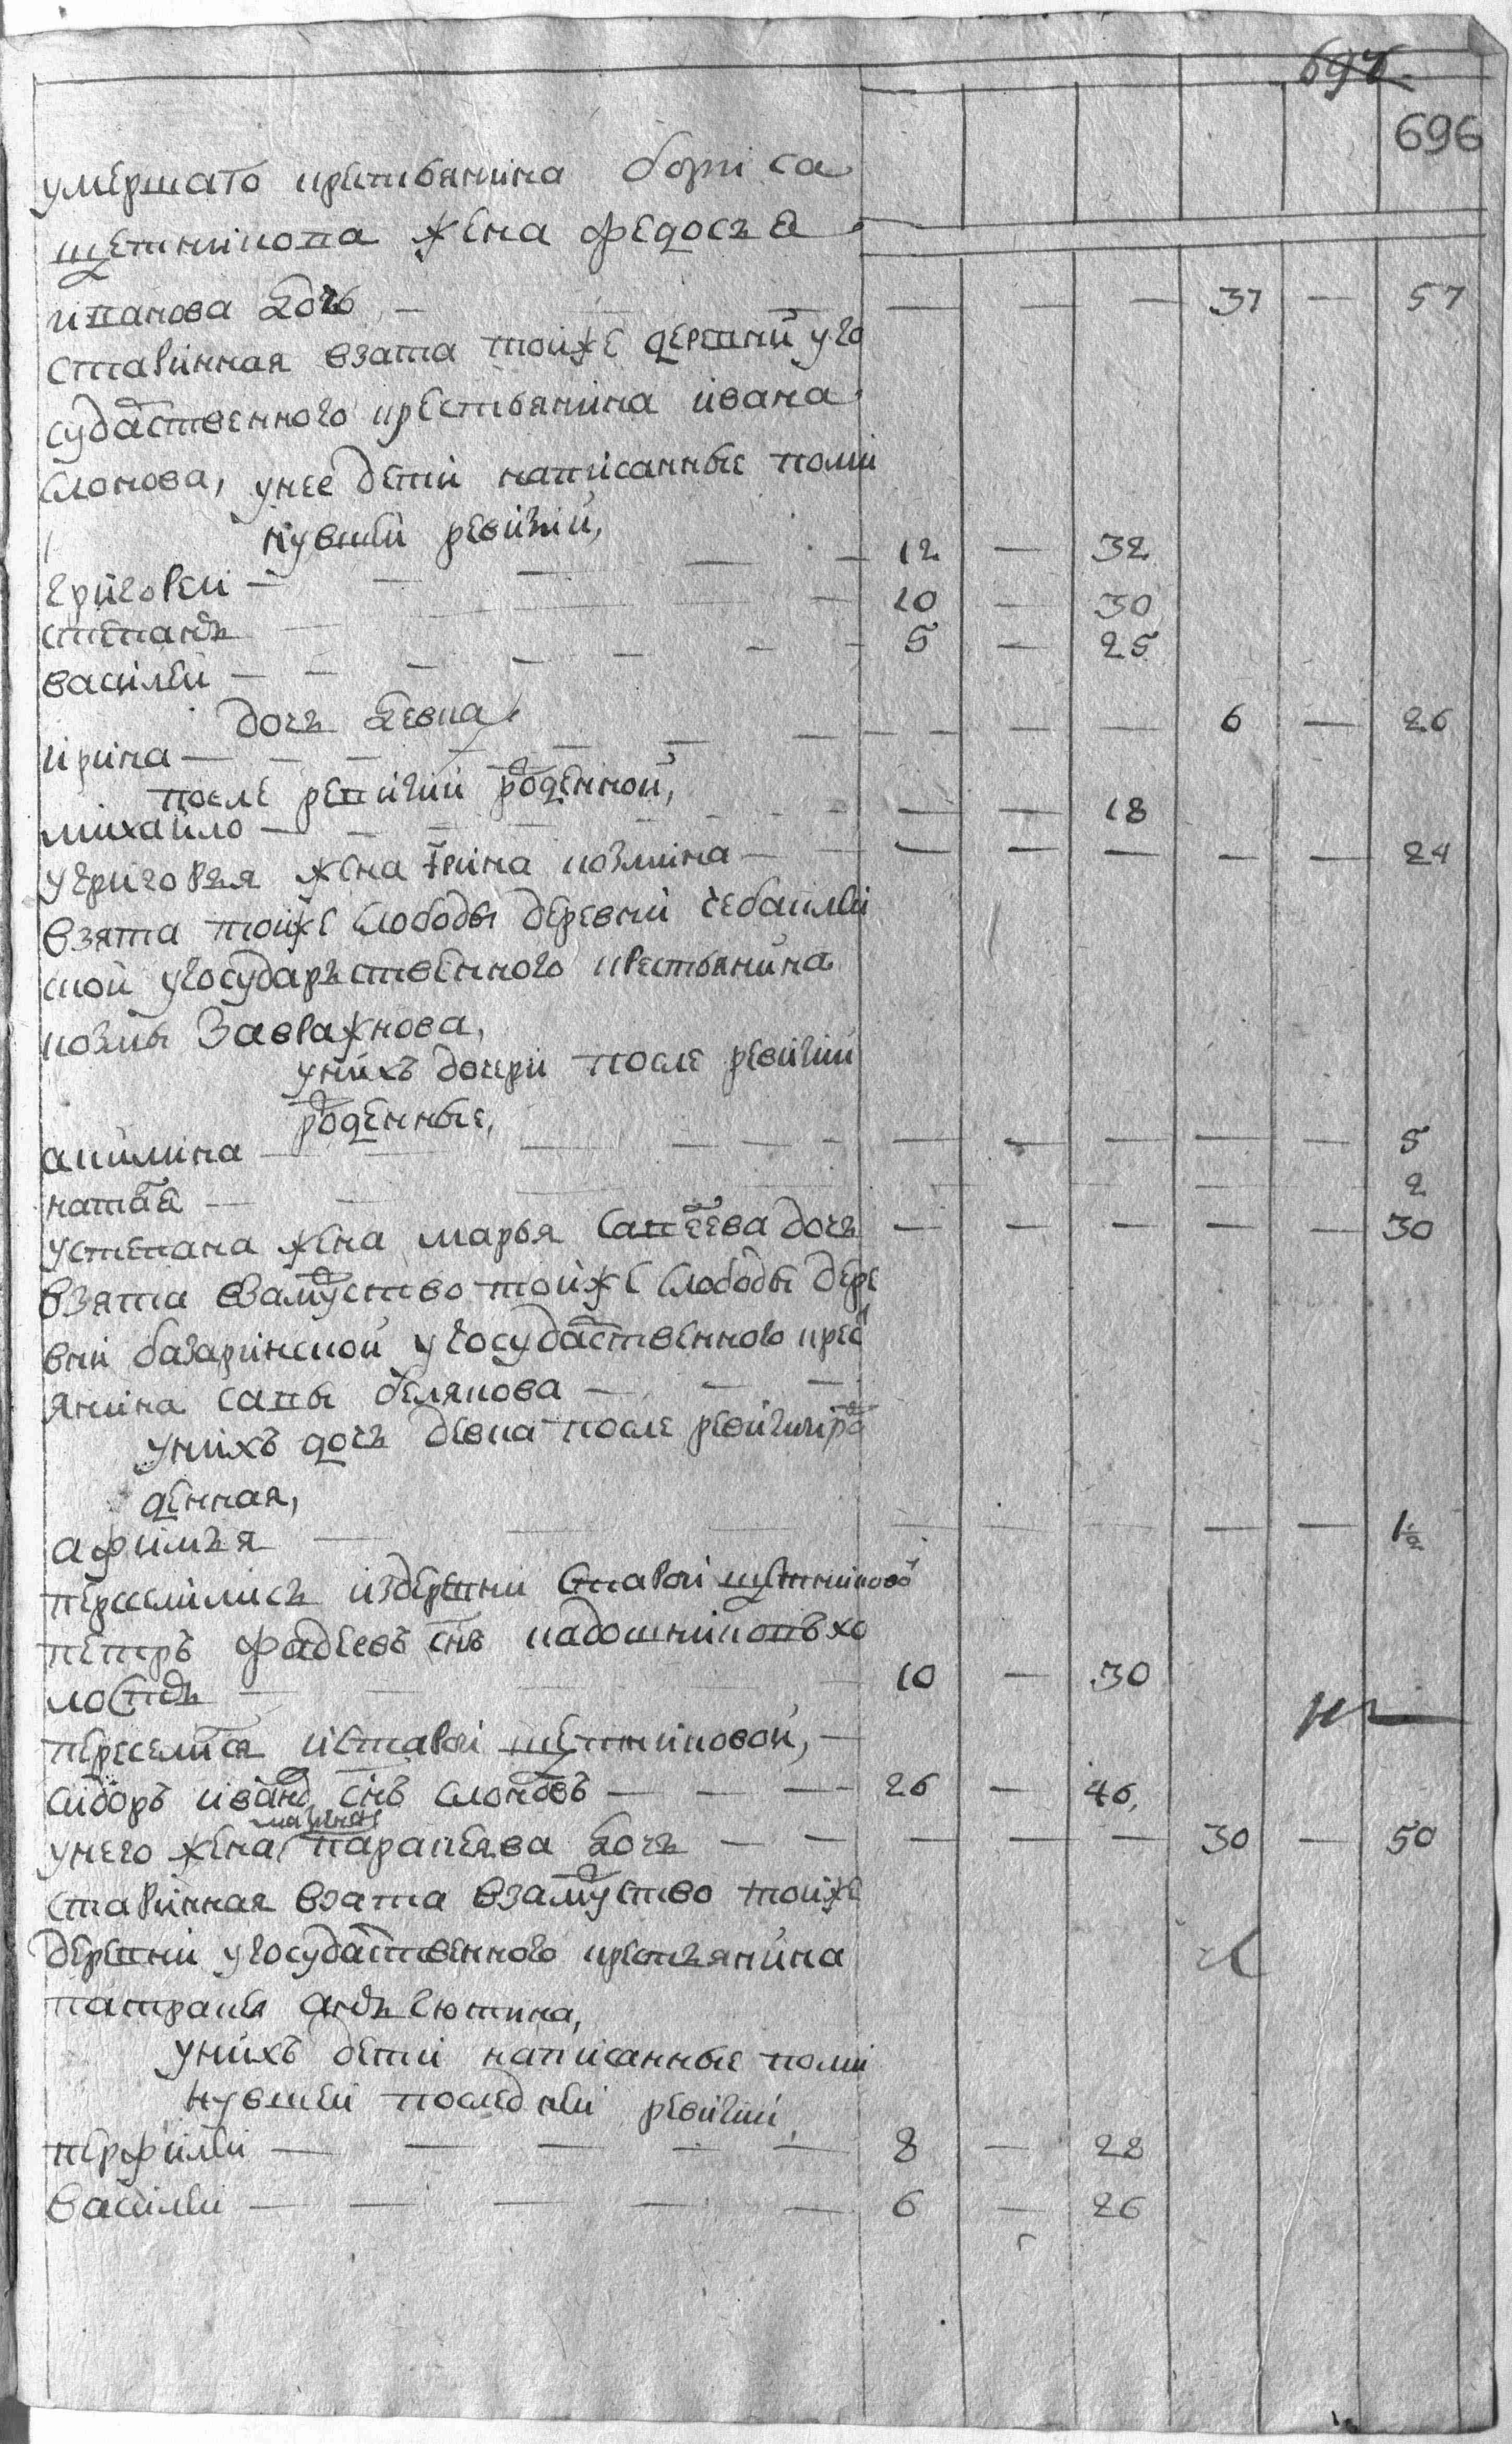 694
696
умершаго крестьянина бориса
щетникова жена федосья
иванова дочь — — — — 37 — 57
старинная взята тойже деревни уго
сударственного крестьянина ивана
слонова, унее дети написанные поми
нувшей ревизии,
григорей — — — — 12 — 32
степанъ — — — — 10 — 30
василей — — — — 5 — 25
дочь девка
ирина — — — — 6 — 26
после ревизии рожденной,
михайло — — — — 18
угригорья жена ирина козмина — — — — — — 24
взята тойже слободы деревни чебаклей
ской угосударственного крестьянина
козмы Завражнова,
унихъ дочери после ревизии
рожденные,
акилина — — — — — — 5
наталья — — — — 2
устепана жена марья савеева дочь — — — — — 30
взята взамужство тойже слободы дере
вни базаринской угосударственного крес
янина савы белякова — — —
унихъ дочь девка после ревизии ро
жденная,
афимья — — — — — — 1½
переселились издеревни старой щетниковой
петръ фадеевъ снъ кадошниковъ хо
лостъ — — — — 10 — 30
переселился истарой щетниковой, —
сидоръ ивановъ снъ слоновъ — — — 26 — 46
унего жена парамеява дочь — — — — — 30 — 50
старинная взята взамужство тойже
деревни угосударственного крестьянина
унихъ дети написанные поми
нувшей последней ревизии,
перфилей — — — — — 8 — 28
василей — — — — — 6 — 26